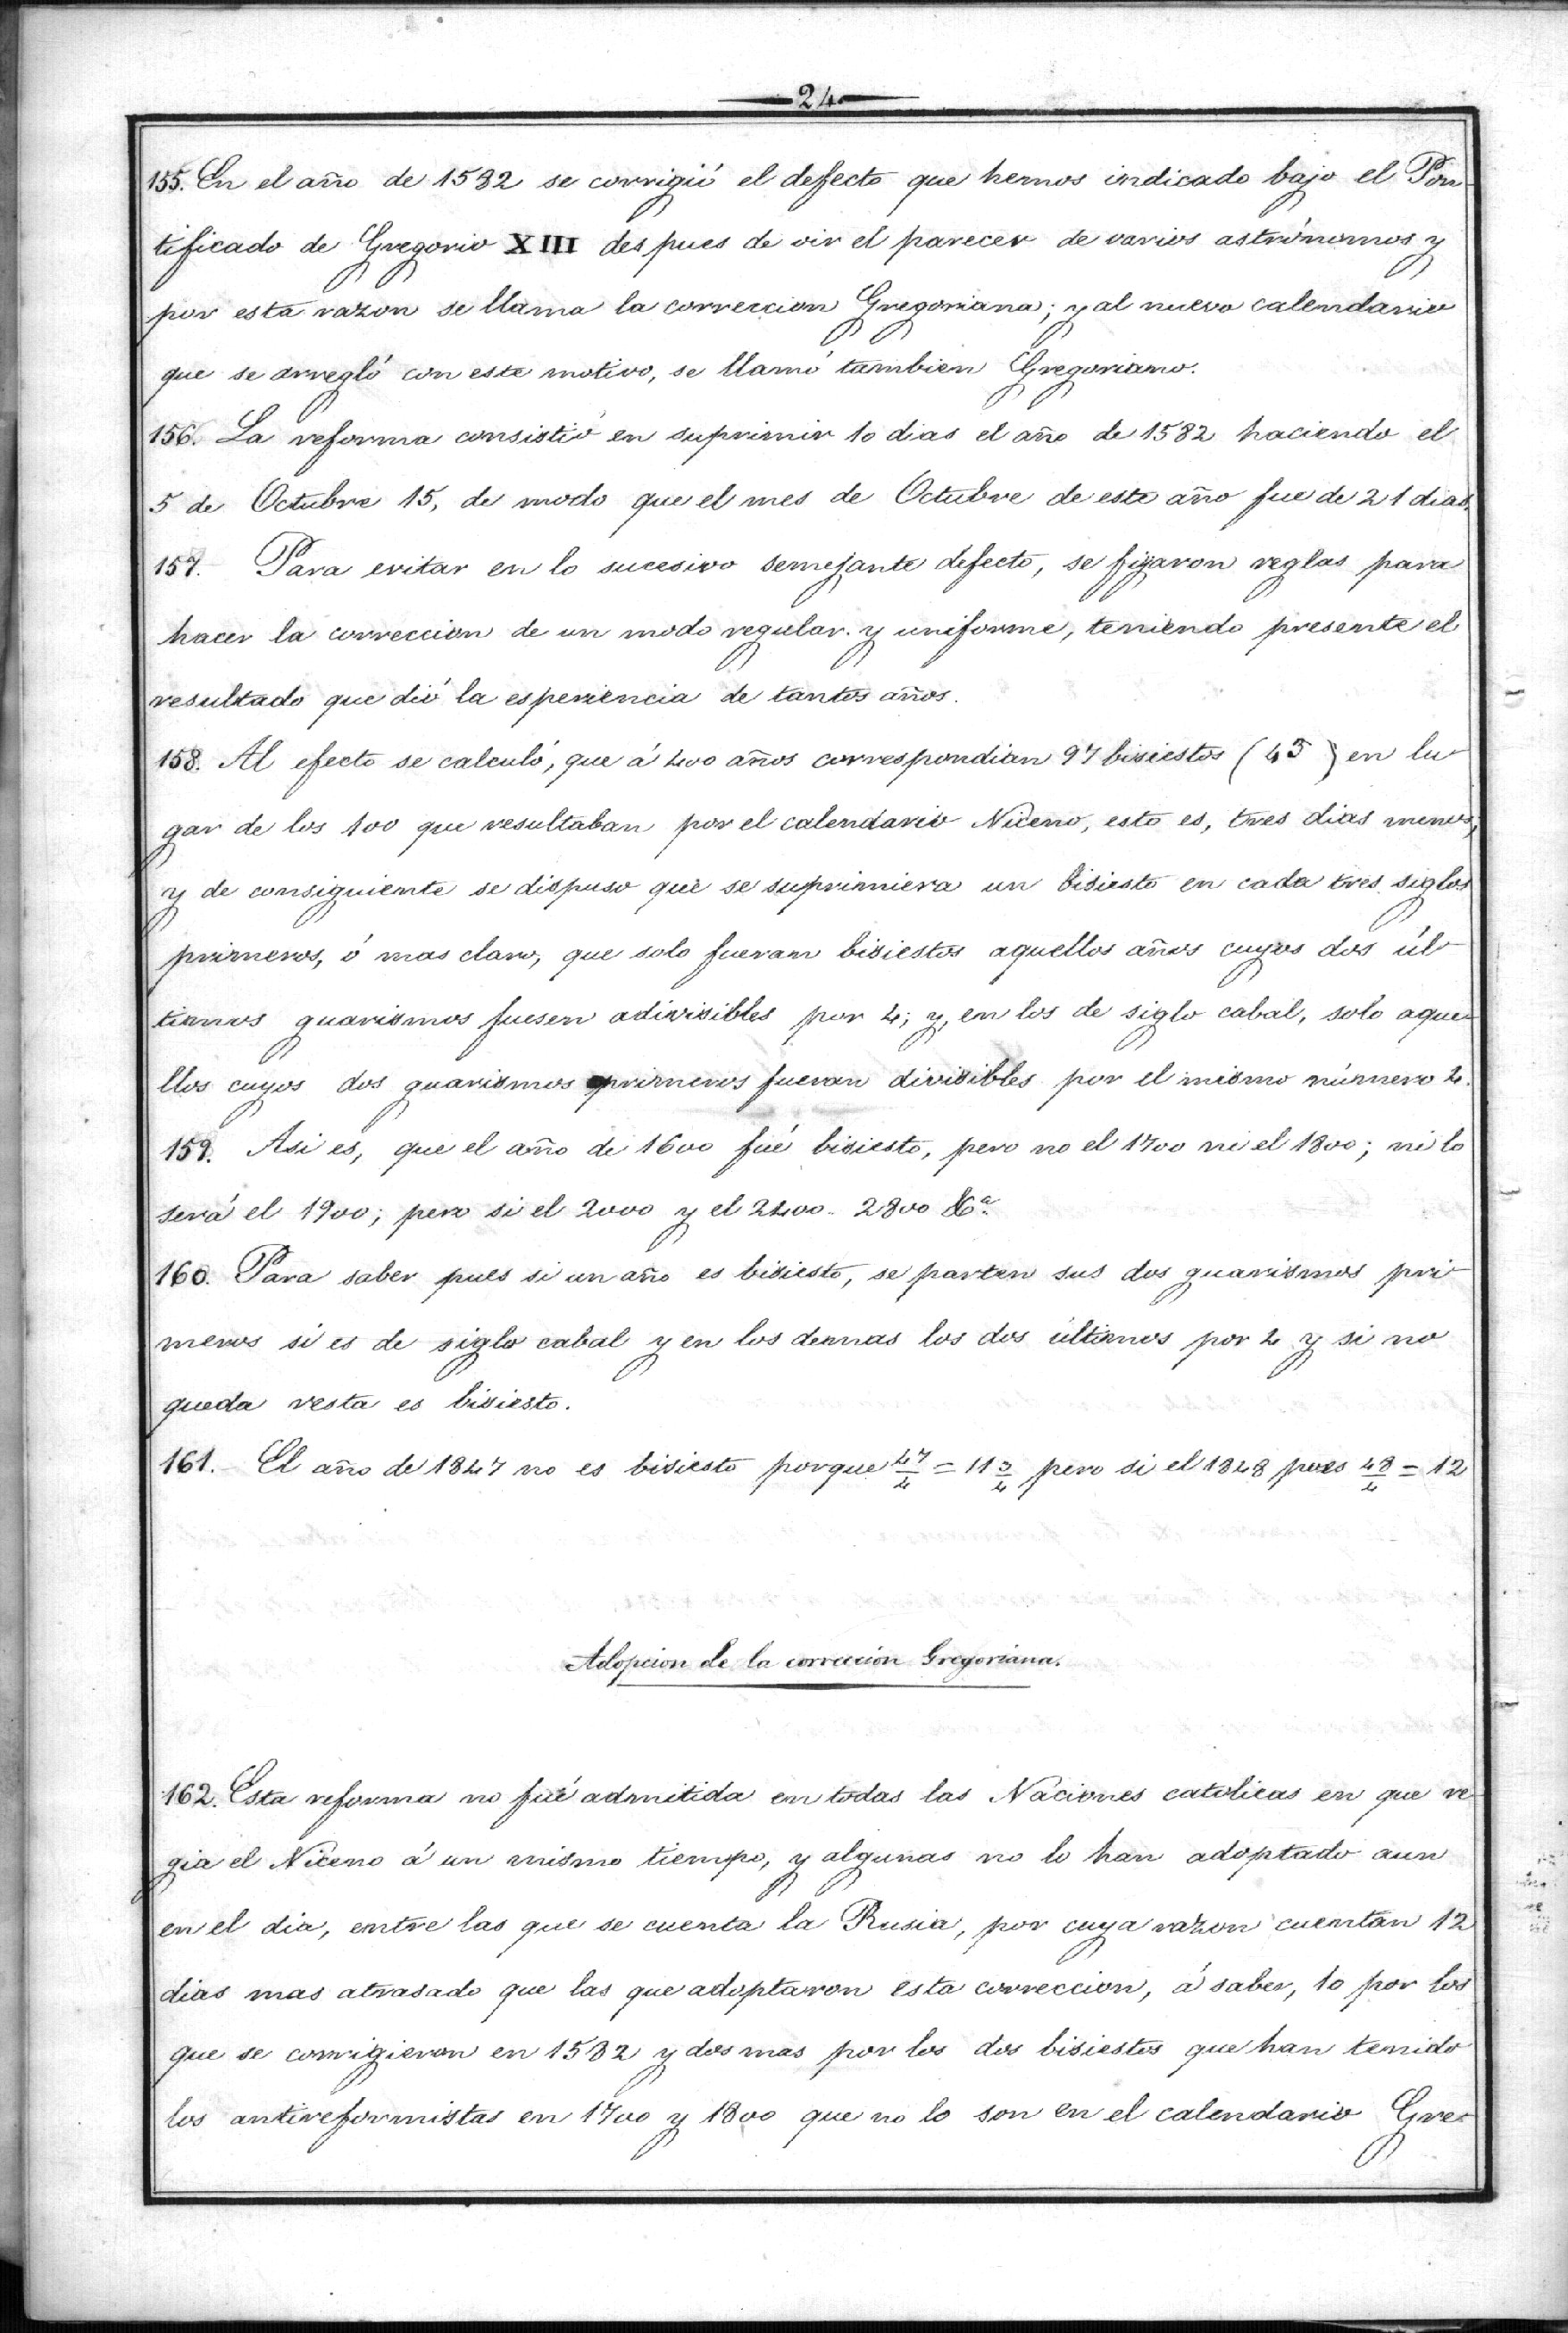 24
155. En el año de 1582 se corrigió el defecto que hemos indicado bajo el Pon-
tificado de Gregorio XIII despues de oir el parecer de varios astrónomos y
por esta razon se llama la correccion Gregoriana; y al nuevo calendario
que se arregló con este motivo, se llamó tambien Gregoriano.
156. La reforma consistió en suprimir 10 dias el año de 1582 haciendo el
5 de Octubre 15, de modo que el mes de Octubre de este año fue de 21 dias.
157. Para evitar en lo sucesivo semejante defecto, se fijaron reglas para
hacer la correccion de un modo regular y uniforme, teniendo presente el
resultado que dió la esperiencia de tantos años.
158. Al efecto se calculó, que á 400 años correspondian 97 bisiestos (45) en lu-
gar de los 100 que resultaban por el calendario Niceno, esto es, tres dias menos,
y de consiguiente se dispuso que se suprimiera un bisiesto en cada tres siglos
primeros, ó mas claro, que solo fueran bisiestos aquellos años cuyos dos úl-
timos guarismos fuesen adivisibles por 4; y, en los de siglo cabal, solo aque-
llos cuyos dos guarismos primeros fueran divisibles por el mismo número 4.
159. Asi es, que el año de 1600 fué bisiesto, pero no el 1700 ni el 1800; ni lo
será el 1900; pero si el 2000 y el 2400. 2800 &ª.
160. Para saber pues si un año es bisiesto, se parten sus dos guarismos pri-
meros si es de siglo cabal y en los demas los dos últimos por 4 y si no
queda resta es bisiesto.
161. El año de 1847 no es bisiesto porque 47/4 = 11 3/4 pero si el 1848 pues 48/4 = 12
Adopcion de la correccion Gregoriana.
162. Esta reforma no fué admitida en todas las Naciones catolicas en que re-
gia el Niceno á un mismo tiempo, y algunas no lo han adoptado aun
en el dia, entre las que se cuenta la Rusia, por cuya razon cuentan 12
dias mas atrasado que las que adoptaron esta correccion, á saber, 10 por los
que se corrigieron en 1582 y dos mas por los dos bisiestos que han tenido
los antireformistas en 1700 y 1800 que no lo son en el calendario Gre-